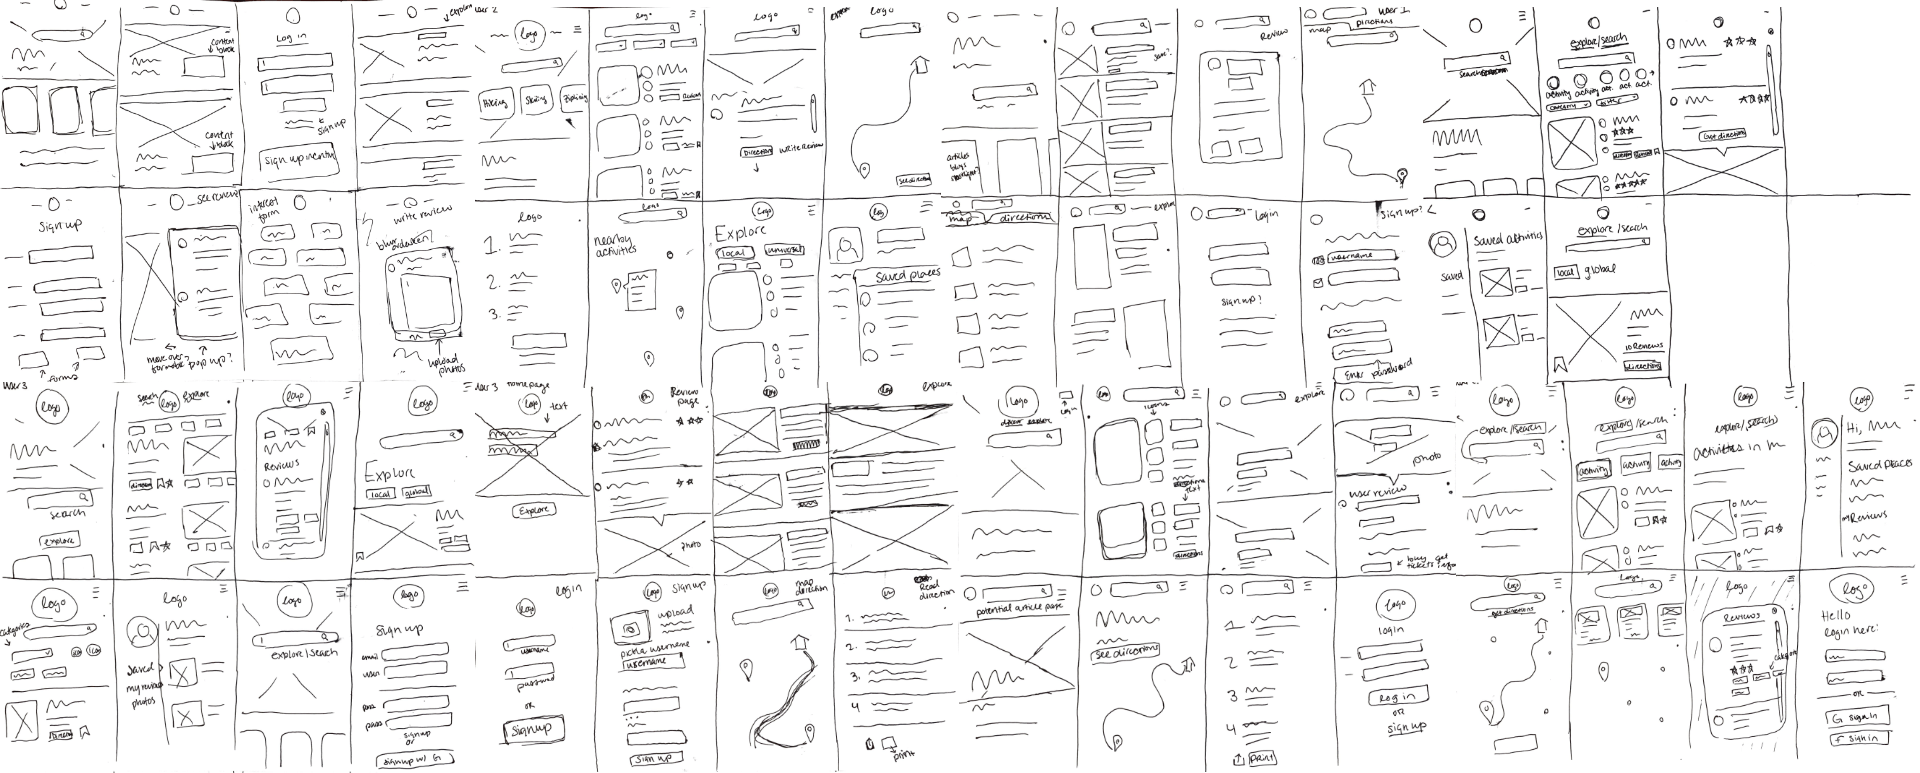 content
block
content
block
Log in
sign up
user 2
logo
Hiking
Skiing
Ziplining
logo
Logo
Direction
write Review
Logo
see direction
articles
blogs
Review
user 1
map
directions
search
explore/search
activity
activity
act.
act.
act.
category
filter
Get direction
sign up
forms
see review
move over
pop up?
interest
form
write review
upload
photos
logo
1.
2.
3.
logo
nearby
activities
Logo
Explore
local
universal
log
Saved places
map
directions
Login
sign up?
username
Enter password
sign up?
saved
Saved activities
explore/search
local
global
10 Reviews
directions
user 3
logo
search
explore
search
logo
explore
logo
Reviews
logo
Explore
local
global
user 3
homepage
logo
text
Explore
Review
page
photo
logo
explore
Logo
login
icons
text
directions
explore
photo
user review
buy
tickets
get
info
logo
explore/search
logo
explore/search
activity
activity
activity
logo
explore/search
activities in
logo
Hi,
Saved Places
Reviews
categories
Logo
logo
saved
my reviews
photos
logo
explore/search
logo
sign up
email
user
pass
pass
signup
or
signup w/ G
login
logo
username
password
or
Sign up
logo
sign up
upload
pick a username
username
Sign up
logo
map
direction
Read
direction
1.
2.
3.
4
print
potential article page
see directions
1
2
3
4
print
logo
login
Log in
or
sign up
logo
get directions
Logo
logo
Reviews
logo
Hello
Login here:
or
G sign in
f sign in